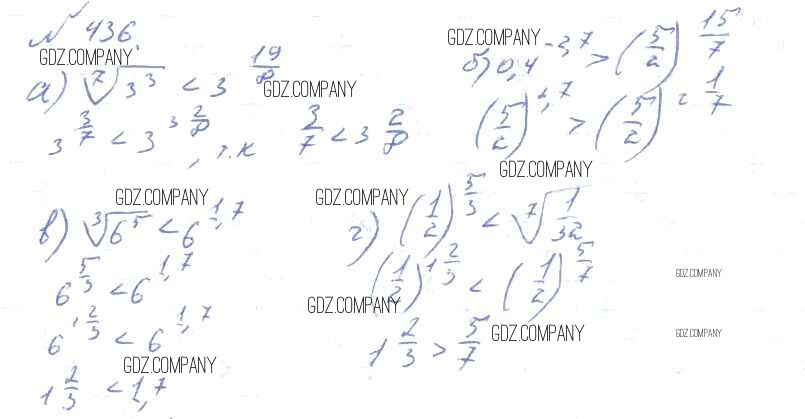 № 436
GDZ.COMPANY
а) ⁷√3³ < 3^(19/8)
GDZ.COMPANY
3^(3/7) < 3^(3 2/8), т.к 3/7 < 3 2/8
GDZ.COMPANY
б) 0,4^(-2,7) > (5/2)^(15/7)
(5/2)^(2,7) > (5/2)^(2 1/7)
GDZ.COMPANY
GDZ.COMPANY
в) ³√6⁵ < 6^(1,7)
6^(5/3) < 6^(1,7)
6^(1 2/3) < 6^(1,7)
GDZ.COMPANY
1 2/3 < 1,7
GDZ.COMPANY
г) (1/2)^(5/3) < ⁷√(1/32)
(1/2)^(1 2/3) < (1/2)^(5/7)
GDZ.COMPANY
1 2/3 > 5/7
GDZ.COMPANY
GDZ.COMPANY
GDZ.COMPANY